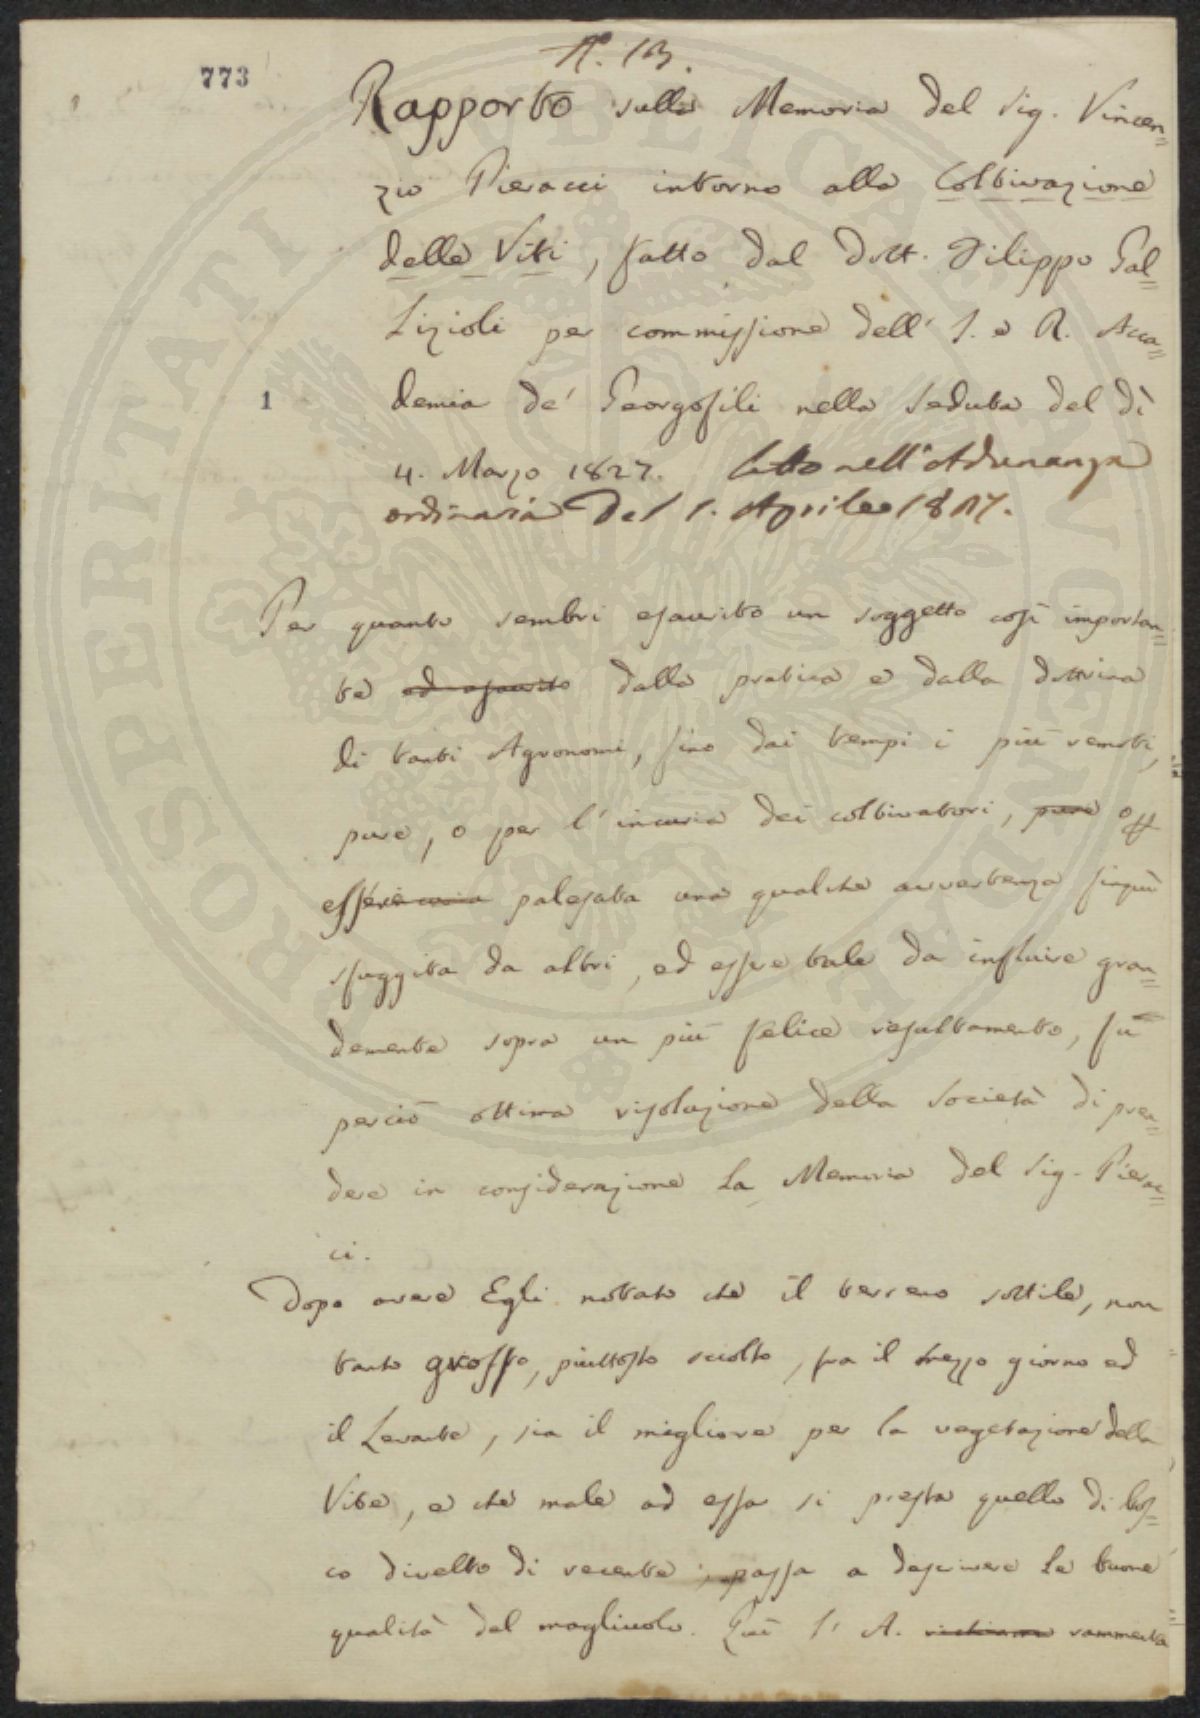 773
N.º 13.
Rapporto sulla Memoria del Sig. Vincen=
zio Pieracci intorno alla Coltivazione
delle Viti, fatto dal Dott. Filippo Gal=
lizioli per commissione dell' I. e R. Acca=
demia de' Georgofili nella Seduta del dì
1
4. Marzo 1827. Letto nell'Adunanza
ordinaria del 1. Aprile 1827.
Per quanto sembri esaurito un soggetto così importan=
te ed esaurito dalla pratica e dalla dottrina
di tanti Agronomi, fino dai tempi i più remoti,
pure, o per l'incuria dei coltivatori, pure o
essere palesata una qualche avvertenza finquì
sfuggita da altri, ed essere tale da influire gran=
demente sopra un più felice resultamento, fù
perciò ottima risoluzione della Società di pren=
dere in considerazione la Memoria del Sig. Pierac=
ci.
Dopo avere Egli notato che il terreno sottile, non
tanto grosso, piuttosto sciolto, fra il mezzo giorno ed
il Levante, sia il migliore per la vegetazione della
Vite, e che male ad essa si presta quello di bos=
co divelto di recente, passa a descrivere le buone
qualità del magliuolo. Quì l'A. rammenta
PROSPERITATI PUBLICAE PROVEHENDAE